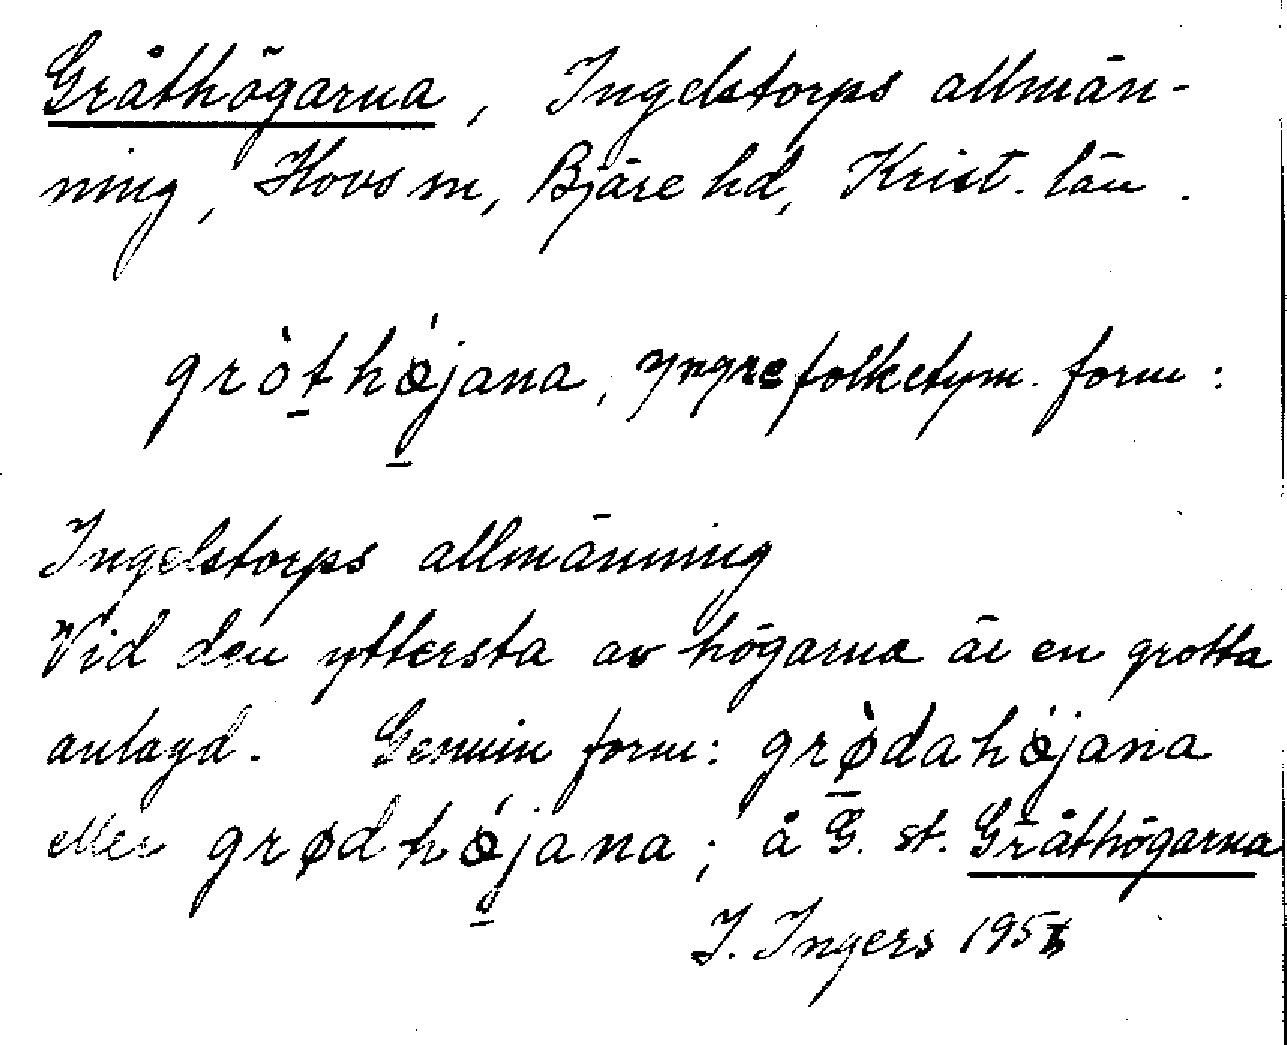 Gråthögarna, Ingelstorps allmän-
ning, Hovs sn, Bjäre hd, Krist. län.
gròthǿjana, yngre folketym. form:
Ingelstorps allmänning
Vid den yttersta av högarna är en grotta
anlagd. Genuin form: grø̀dahǿjana
eller grødhǿjana; å G. st. Gråthögarna
I. Ingers